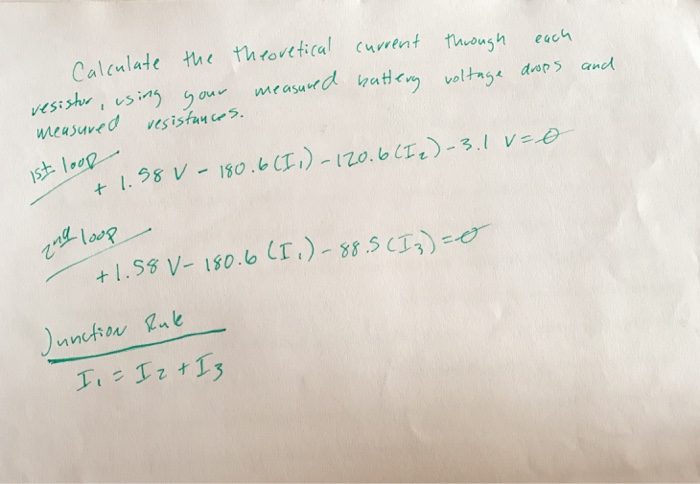 Calculate the theoretical current through each
resistor, using your measured battery voltage drops and
measured resistances.
1st loop
+ 1.58 V - 180.6(I₁) - 120.6(I₂) - 3.1 V = 0
2nd loop
+1.58 V - 180.6 (I₁) - 88.5 (I₃) = 0
Junction Rule
I₁ = I₂ + I₃